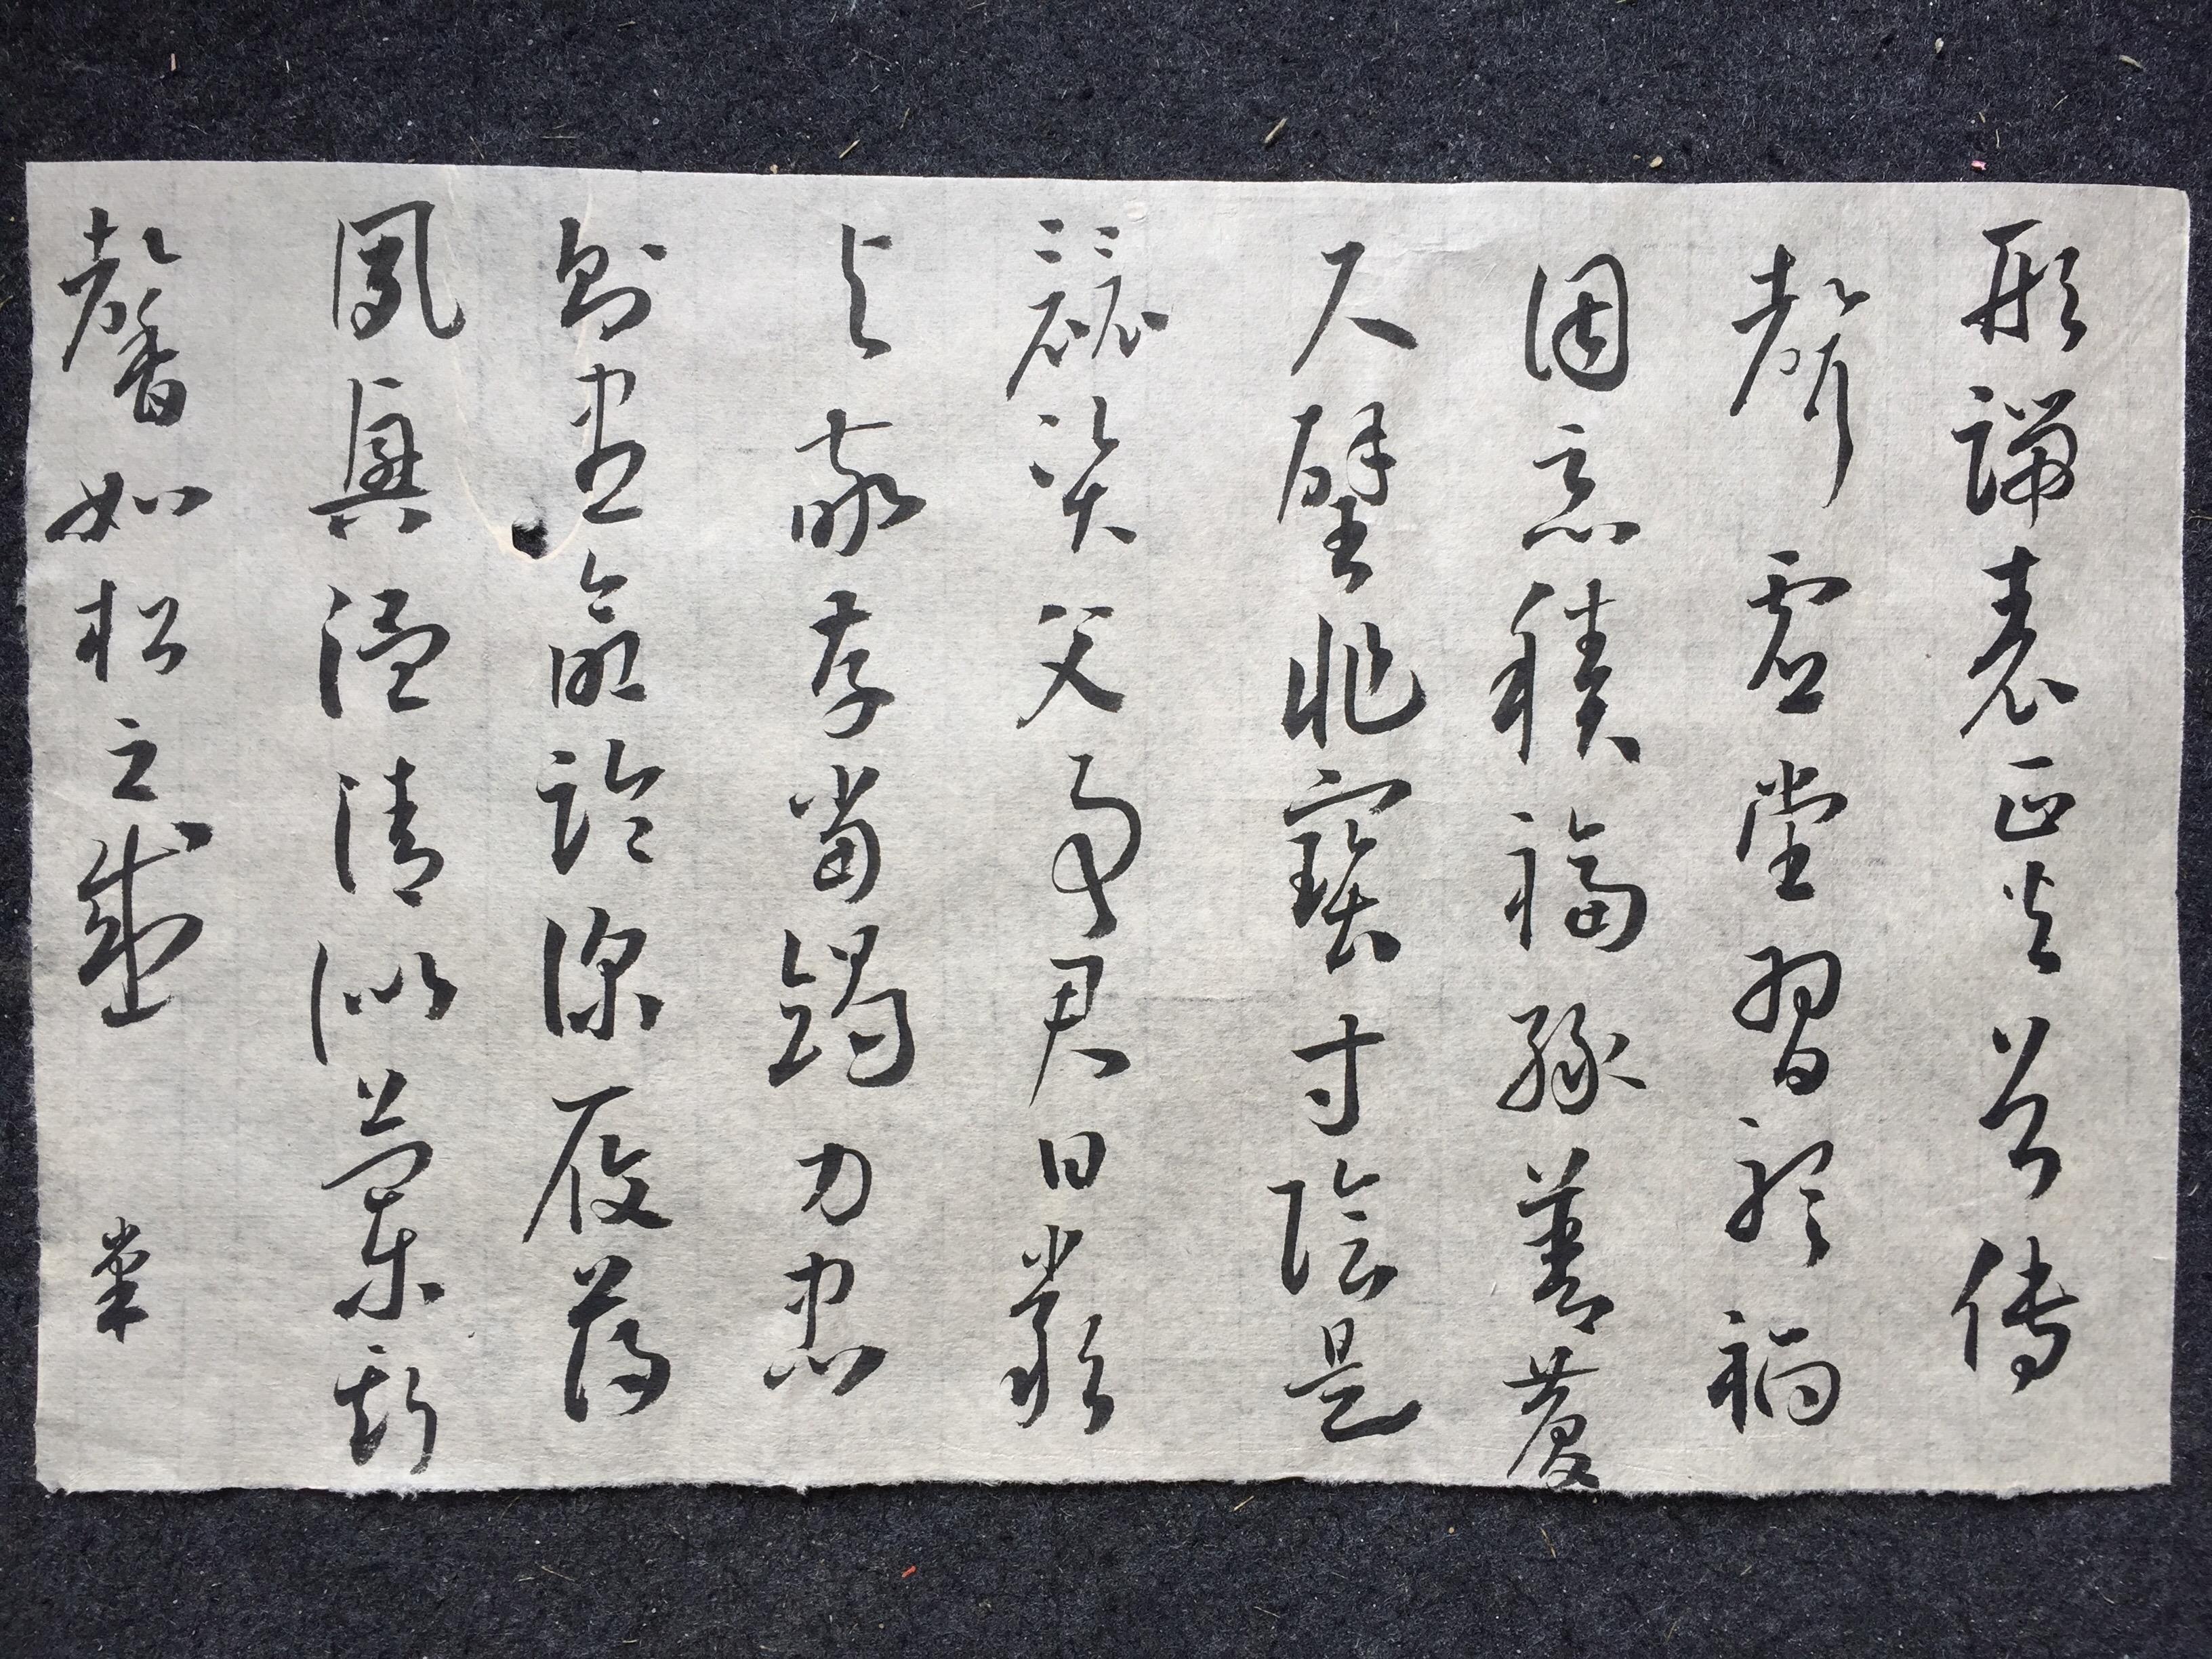 形端表正空谷傳
聲虛堂習聽禍
因惡積福緣善慶
尺璧非寶寸陰是
競資父事君曰嚴
與敬孝當竭力忠
則盡命臨深履薄
夙興溫清似蘭斯
馨如松之盛